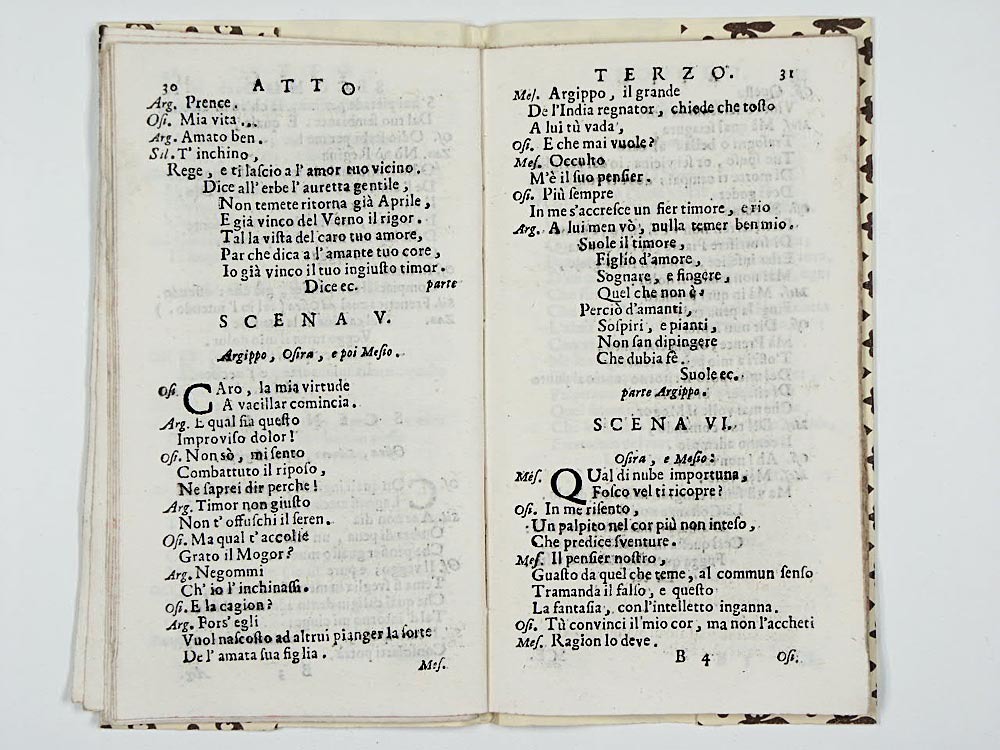 30 ATTO
Arg. Prence.
Osi. Mia vita...
Arg. Amato ben.
Sil. T' inchino,
Rege, e ti lascio a l' amor tuo vicino.
Dice all' erbe l' auretta gentile,
Non temete ritorna già Aprile,
E già vinco del Verno il rigor.
Tal la vista del caro tuo amore,
Par che dica a l'amante tuo core,
Io già vinco il tuo ingiusto timor.
Dice ec. parte
SCENA V.
Argippo, Osira, e poi Mesio.
Osi. CAro, la mia virtude
A vacillar comincia.
Arg. E qual sia questo
Improviso dolor!
Osi. Non sò, mi sento
Combattuto il riposo,
Ne saprei dir perche!
Arg. Timor non giusto
Non t' offuschi il seren.
Osi. Ma qual t' accolse
Grato il Mogor?
Arg. Negommi
Ch' io l' inchinassi.
Osi. E la cagion?
Arg. Fors' egli
Vuol nascosto ad altrui pianger la sorte
De l' amata sua figlia.
Mes.
TERZO. 31
Mes. Argippo, il grande
De l'India regnator, chiede che tosto
A lui tù vada,
Osi. E che mai vuole?
Mes. Occulto
M'è il suo pensier.
Osi. Più sempre
In me s'accresce un fier timore, e rio
Arg. A lui men vò, nulla temer ben mio.
Suole il timore,
Figlio d'amore,
Sognare, e fingere,
Quel che non è.
Perciò d'amanti,
Sospiri, e pianti,
Non san dipingere
Che dubia fè.
Suole ec.
parte Argippo.
SCENA VI.
Osira, e Mesio:
Mes. QUal di nube importuna,
Fosco vel ti ricopre?
Osi. In me risento,
Un palpito nel cor più non inteso,
Che predice sventure.
Mes. Il pensier nostro,
Guasto da quel che teme, al commun senso
Tramanda il falso, e questo
La fantasia, con l'intelletto inganna.
Osi. Tù convinci il mio cor, ma non l'accheti
Mes. Ragion lo deve.
B 4 Osi.